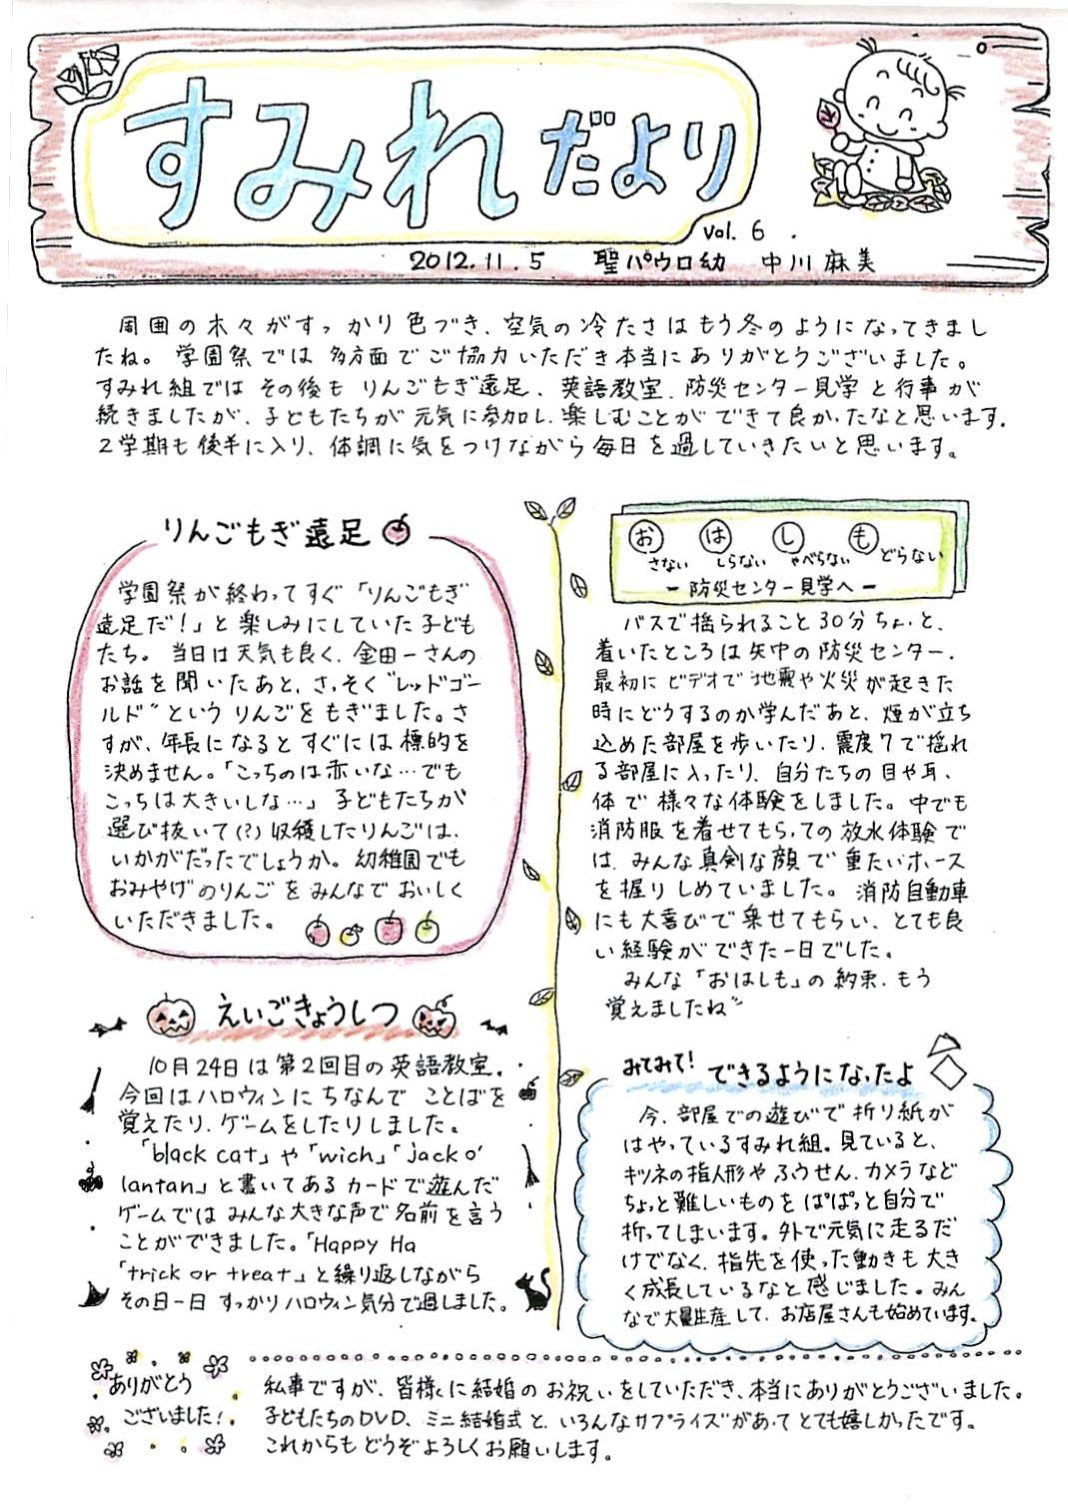 すみれだより
vol. 6
2012.11.5 聖パウロ幼 中川麻美
周囲の木々がすっかり色づき、空気の冷たさはもう冬のようになってきまし
たね。学園祭では多方面でご協力いただき本当にありがとうございました。
すみれ組ではその後もりんごもぎ遠足、英語教室、防災センター見学と行事が
続きましたが、子どもたちが元気に参加し、楽しむことができて良かったなと思います。
2学期も後半に入り、体調に気をつけながら毎日を過していきたいと思います。
りんごもぎ遠足
学園祭が終わってすぐ「りんごもぎ
遠足だ!」と楽しみにしていた子ども
たち。当日は天気も良く、金田一さんの
お話を聞いたあと、さっそく"レッドゴー
ルド"というりんごをもぎました。さ
すが、年長になるとすぐには標的を
決めません。「こっちのは赤いな…でも
こっちは大きいしな…」子どもたちが
選び抜いて(?)収穫したりんごは、
いかがだったでしょうか。幼稚園でも
おみやげのりんごをみんなでおいしく
いただきました。
えいごきょうしつ
10月24日は第2回目の英語教室。
今回はハロウィンにちなんでことばを
覚えたり、ゲームをしたりしました。
「black cat」や「wich」「jack o'
lantan」と書いてあるカードで遊んだ
ゲームではみんな大きな声で名前を言う
ことができました。「Happy Ha
「trick or treat」と繰り返しながら
その日一日すっかりハロウィン気分で過しました。
お は し も
さない しらない ゃべらない どらない
－防災センター見学へ－
バスで揺られること30分ちょっと、
着いたところは矢巾の防災センター。
最初にビデオで地震や火災が起きた
時にどうするのか学んだあと、煙が立ち
込めた部屋を歩いたり、震度7で揺れ
る部屋に入ったり、自分たちの目や耳、
体で様々な体験をしました。中でも
消防服を着せてもらっての放水体験で
は、みんな真剣な顔で重たいホース
を握りしめていました。消防自動車
にも大喜びで乗せてもらい、とても良
い経験ができた一日でした。
みんな「おはしも」の約束、もう
覚えましたね"
みてみて!できるようになったよ
今、部屋での遊びで折り紙が
はやっているすみれ組。見ていると、
キツネの指人形やふうせん、カメラなど
ちょっと難しいものをぱぱっと自分で
折ってしまいます。外で元気に走るだ
けでなく、指先を使った動きも大き
く成長しているなと感じました。みん
なで大量生産して、お店屋さんも始めています。
ありがとう
ございました!
私事ですが、皆様に結婚のお祝いをしていただき、本当にありがとうございました。
子どもたちのDVD、ミニ結婚式と、いろんなサプライズがあってとても嬉しかったです。
これからもどうぞよろしくお願いします。